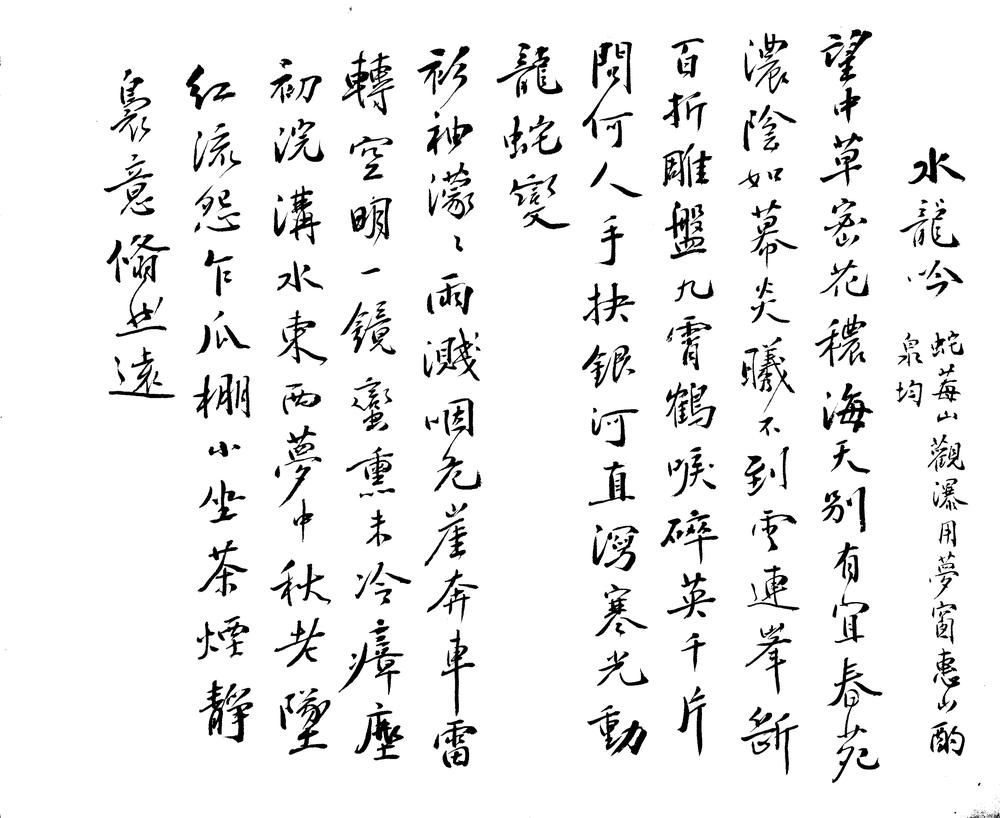 水龍吟 蛇莓山觀瀑用夢窗惠山酌
泉均
望中草密花穠海天别有宜春苑
濃陰如幕炎曦不到雲連峯斷
百折雕盤九霄鶴唳碎英千片
問何人手抉銀河直瀉寒光動
龍蛇變
衫袖濛〻雨濺咽危崖奔車雷
轉空明一鏡蠻熏未冷瘴塵
初浣溝水東西夢中秋老墜
紅流怨乍瓜棚小坐茶煙靜
裊意翛然遠